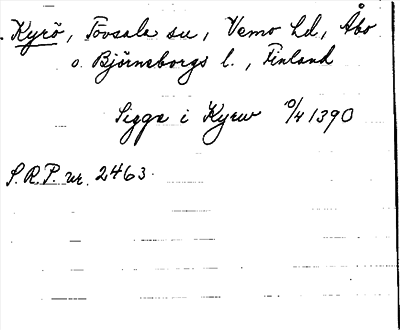 Kyrö, Tövsala sn, Vemo hd, Åbo
o. Björneborgs l., Finland
Sigge i Kyrw 0/4 1390
S.R.P. nr. 2463.